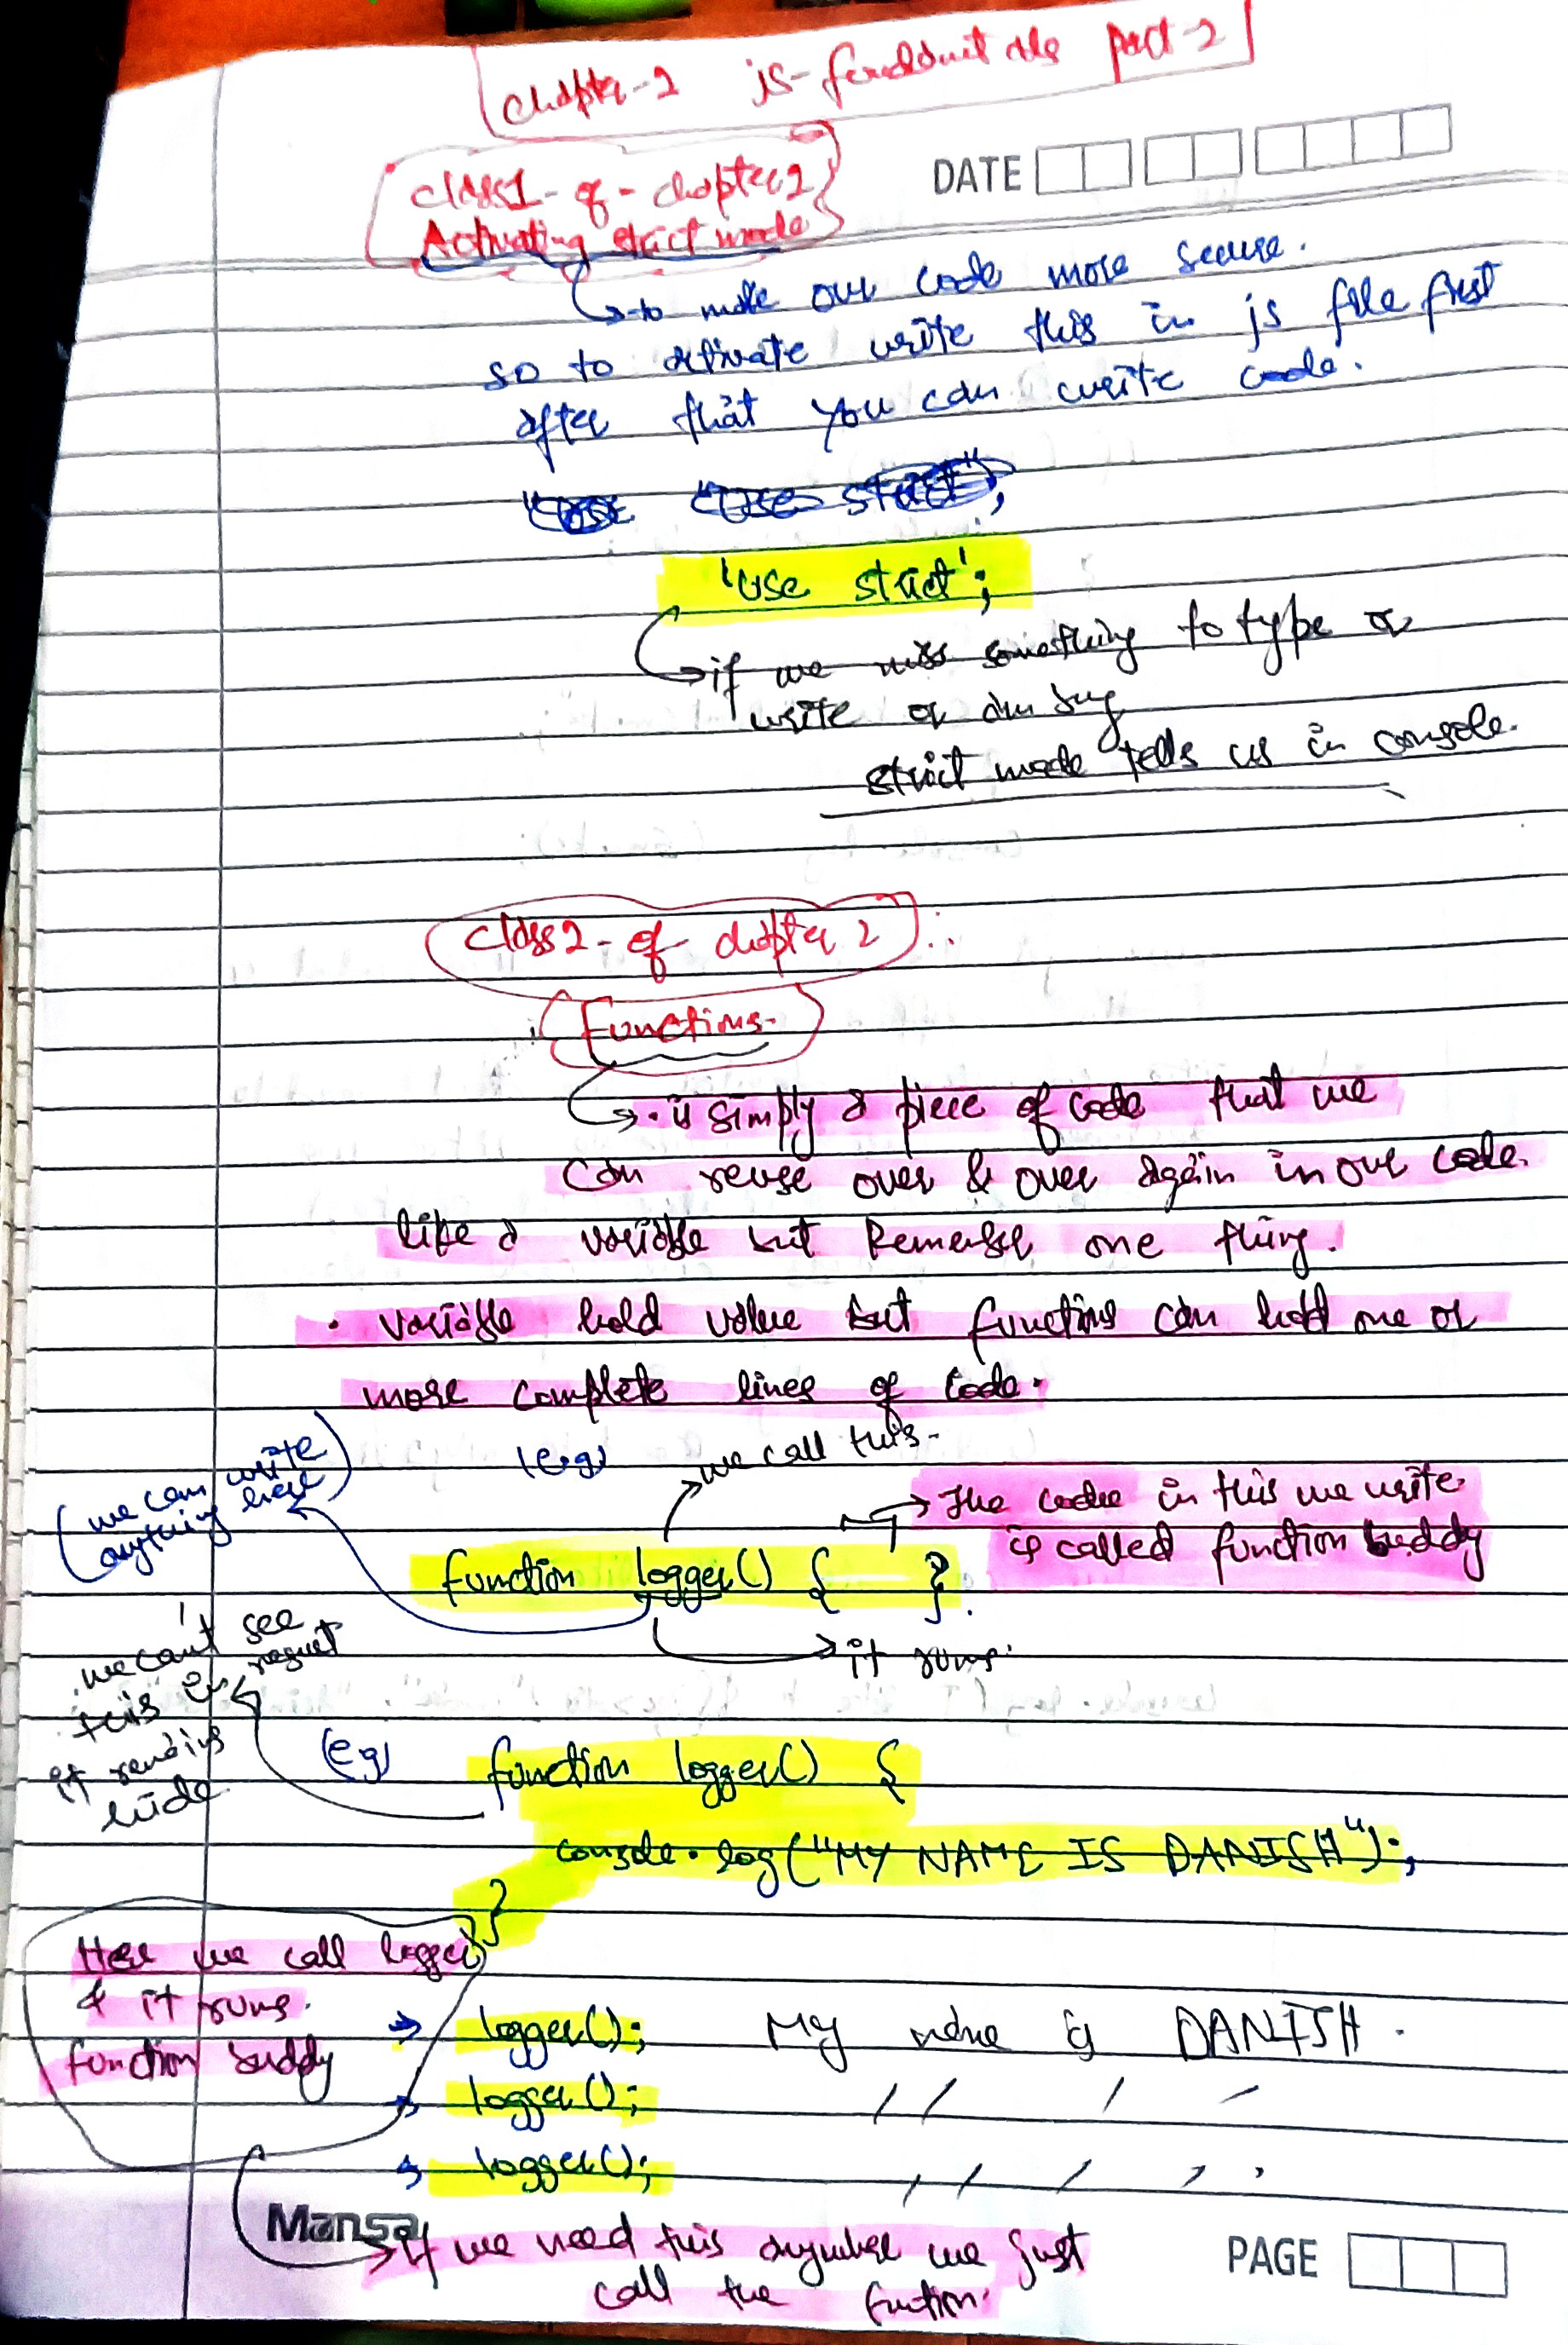 chapter-2 js-fundamentals part-2
DATE
class1-of-chapter2
Activating strict mode
to make our code more secure.
so to activate write this in js file first
after that you can write code.
'use strict';
if we miss something to type or
write or any bug
strict mode tells us in console.
class2-of chapter 2
Functions
is simply a piece of code that we
can reuse over & over again in our code.
like a variable but Remember one thing.
• variable hold value but functions can hold one or
more complete lines of code.
(eg)
we call this.
we can write
anything here
The code in this we write
is called function buddy
function logger() { }
it runs.
we can't see
this in result
it remains
hide
(eg) function logger() {
console.log("MY NAME IS DANISH");
}
Here we call logger
& it runs.
function buddy
logger(); My name is DANISH.
logger(); / / / /
logger(); / / / , ,
Mansa
If we need this anywhere we just
call the function.
PAGE